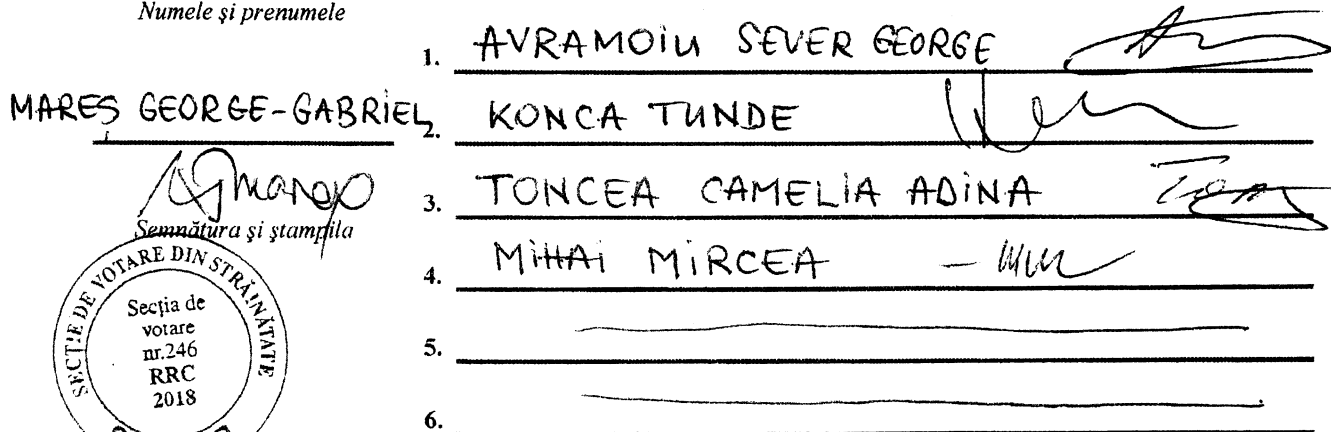 Numele și prenumele
MAREȘ GEORGE-GABRIEL
Semnătura și ștampila
SECȚIE DE VOTARE DIN STRĂINĂTATE
Secția de
votare
nr.246
RRC
2018
1. AVRAMOIU SEVER GEORGE
2. KONCA TUNDE
3. TONCEA CAMELIA ADINA
4. MIHAI MIRCEA
5.
6.